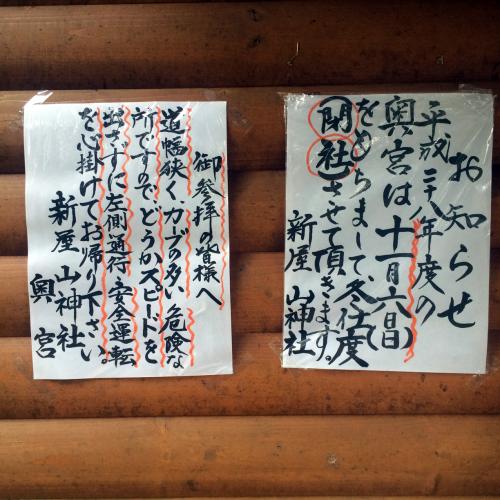 お知らせ
平成二十八年度の
奥宮は十一月六日(日)
をもちまして、冬仕度
閉社させて頂きます。
新屋山神社
御参拝の皆様へ
道幅狭く、カーブの多い危険な
所ですので、どうかスピードを
出さずに左側通行、安全運転
を心掛けてお帰り下さい。
新屋山神社
奥宮